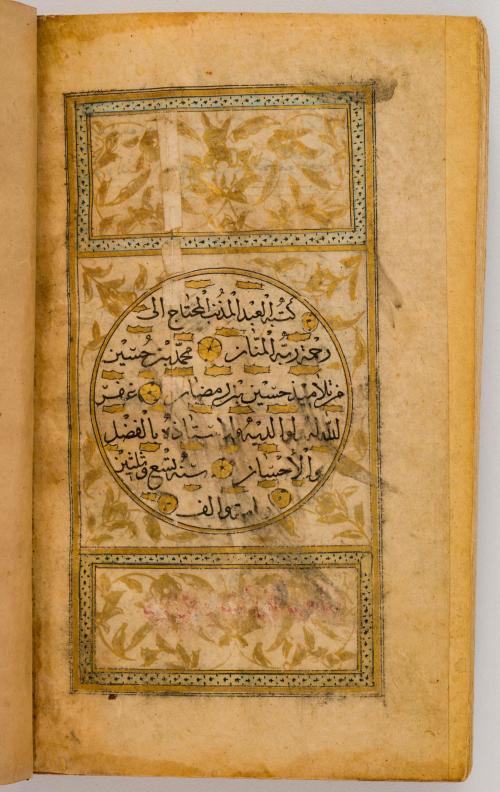 كتبه العبد المذنب المحتاج الى
رحمة ربه المنان محمد بن حسين
من تلاميذ حسين بن رمضان غفر
الله له ولوالديه ولاستاذه بالفضل
والاحسان سنه تسع وثلثين
والف